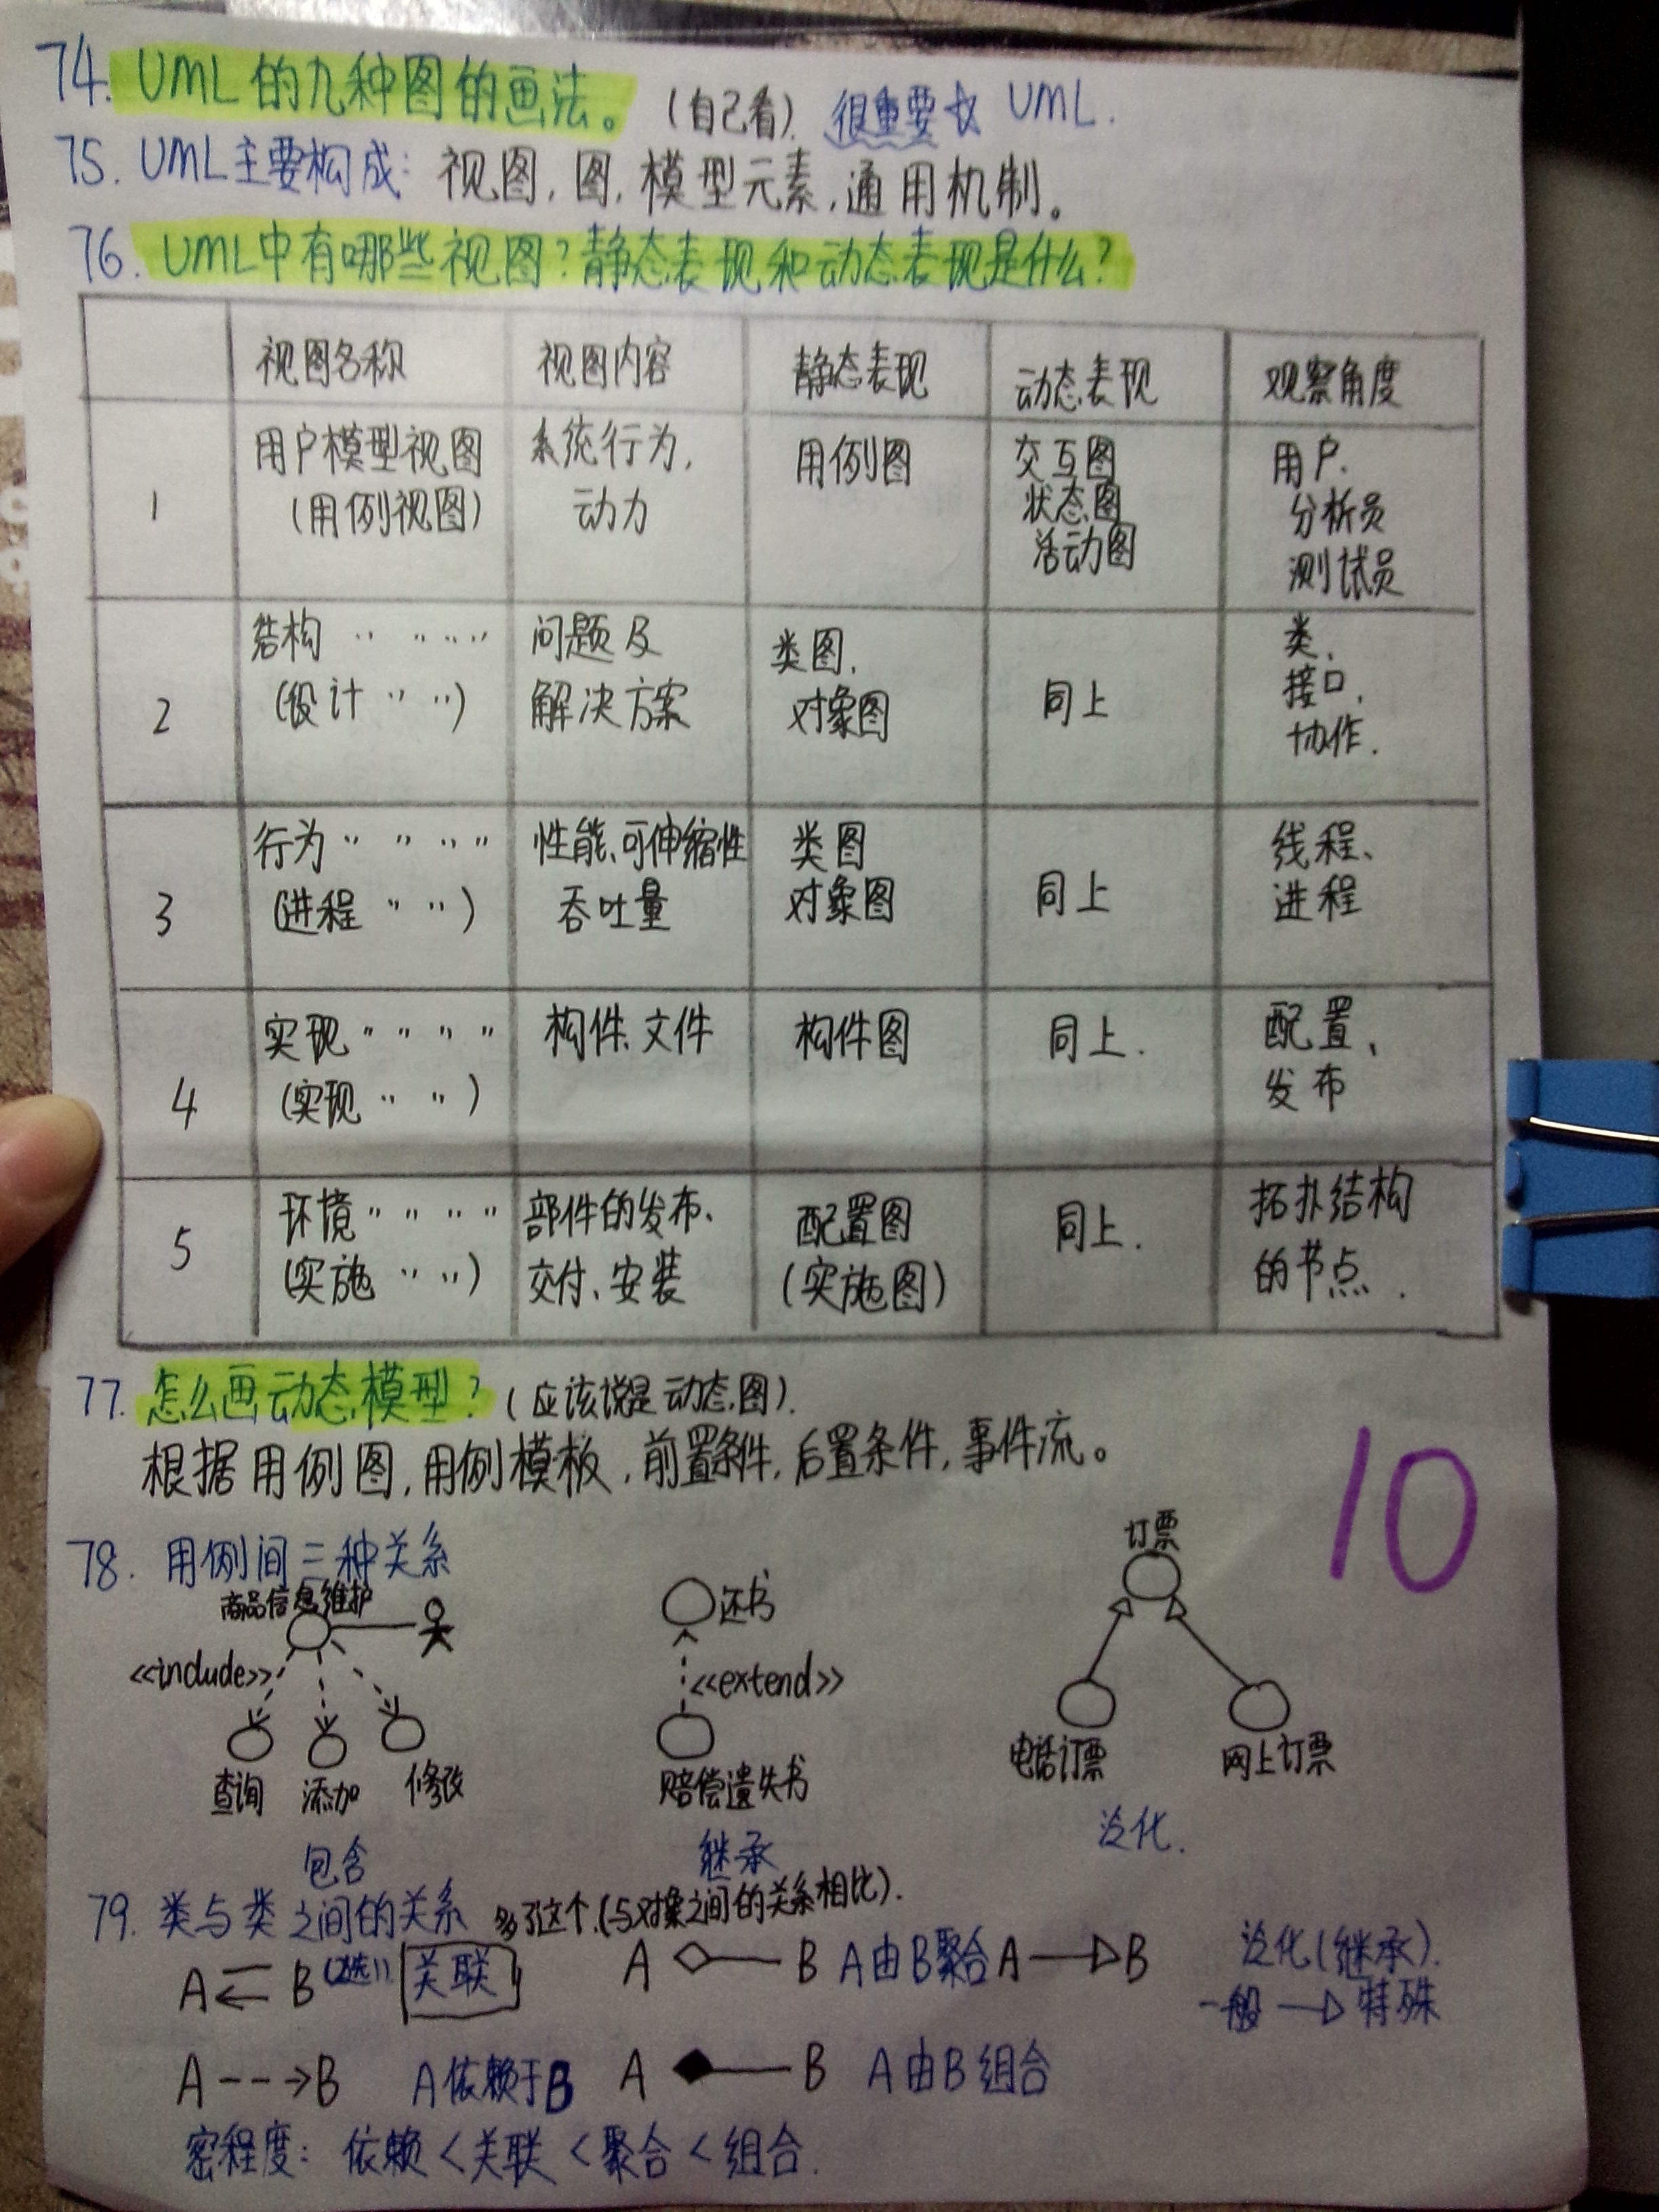 74. UML的九种图的画法。(自己看). 很重要 UML.
75. UML主要构成: 视图, 图, 模型元素, 通用机制。
76. UML中有哪些视图?静态表现和动态表现是什么?
视图名称 视图内容 静态表现 动态表现 观察角度
1 用户模型视图 系统行为, 用例图 交互图 用户.
(用例视图) 动力 状态图 分析员
活动图 测试员
结构 〃 〃〃〃 问题及 类图, 类,
2 (设计 〃 〃) 解决方案 对象图 同上 接口,
协作.
行为 〃 〃 〃 〃 性能、可伸缩性 类图 线程、
3 (进程 〃 〃) 吞吐量 对象图 同上 进程
实现 〃 〃 〃 〃 构件、文件 构件图 同上. 配置、
4 (实现 〃 〃) 发布
环境 〃 〃 〃 〃 部件的发布、 配置图 同上. 拓扑结构
5 (实施 〃 〃) 交付、安装 (实施图) 的节点.
77. 怎么画动态模型?(应该说是动态图).
根据用例图, 用例模板, 前置条件, 后置条件, 事件流。
10
78. 用例间三种关系
商品信息维护
<<include>>
查询 添加 修改
包含
还书
<<extend>>
赔偿遗失书
继承
订票
电话订票 网上订票
泛化.
79. 类与类之间的关系 多了这个.(与对象之间的关系相比).
A B 关联 A B A由B聚合 A B 泛化(继承).
一般 特殊
A B A依赖于B A B A由B组合
密程度: 依赖<关联<聚合<组合.